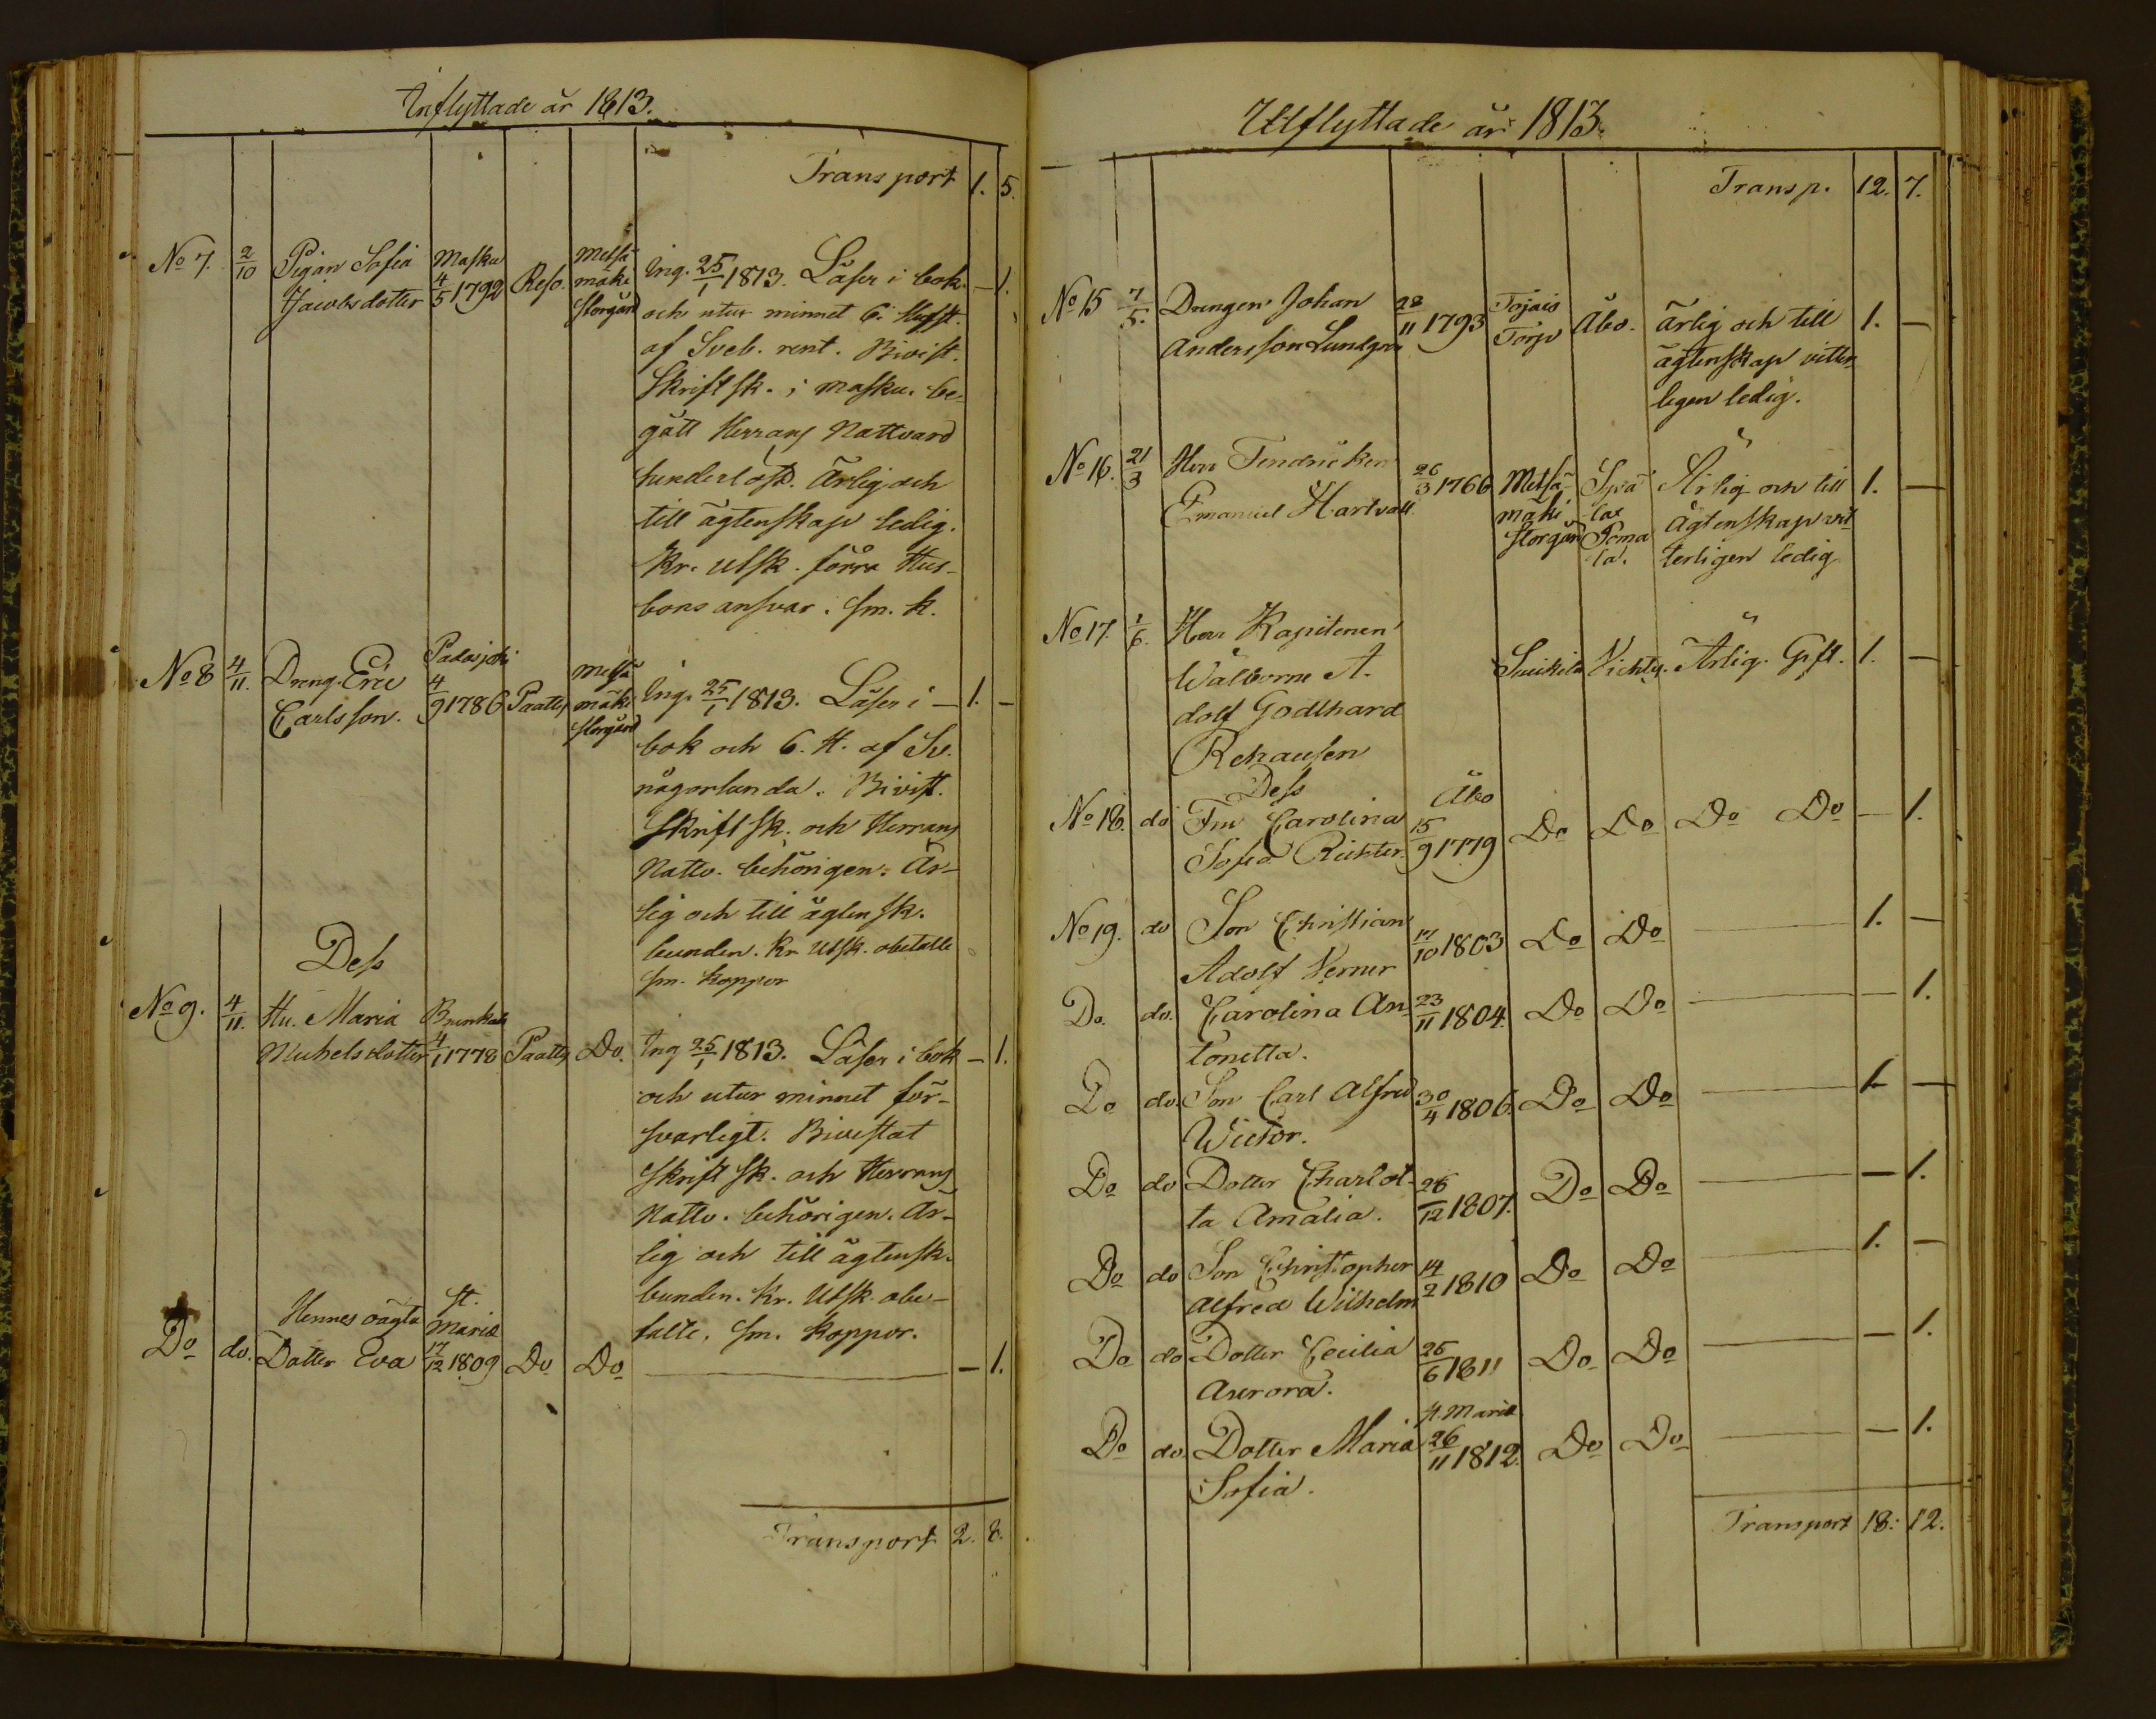 Inflyttade år 1813.
Transport 1. 5.
No 7. 2/10 Pigan Sofia Jacobsdotter Masku 4/5 1792 Reso. Metsä mäki storgård Ing. 25/1 1813. Läser i bok — 1.
och utur minnet 6. Hufst.
af Sveb. rent. Bivist.
Skriftsk. i Masku. be-
gått Herrans Nattvard
hinderlöst. Ärlig och
till ägtenskap ledig.
Kr. Utsk. förra Hus-
bons ansvar. Sm. k.
No 8 4/11. Dreng. Eric Carlsson. Padasjoki 4/9 1786 Paatty Metsä mäki storgård Ing. 25/1 1813. Läser i — 1. —
bok och 6. H. af Sv.
någorlunda. Bivist.
Skriftsk. och Herrans
Nattv. behörigen. Är-
lig och till ägtensk.
bunden. Kr. Utsk. obetalte
sm. koppor
Dess
No 9. 4/11. Hu. Maria Michelsdotter 4/1 1778 Paatty Do. Ing 25/1 1813. Läser i bok — 1.
och utur minnet för-
svarligt. Bivistat
Skriftsk. och Herrans
Nattv. behörigen. Är-
lig och till ägtensk.
bunden. Kr. Utsk. obe-
talte. Sm. koppor.
Do do. Hennes oägta Dotter Eva St. Mariæ 17/12 1809 Do Do — — 1.
Transport 2. 8.
Utflyttade år 1813.
Transp. 12. 7.
No 15 7/5. Drengen Johan Andersson Lundgren 28/11 1793 Torp Åbo. ärlig och till 1. —
ägtenskap vitter-
ligen ledig.
No 16. 21/3 Herr Fendricken Emanuel Hartvall 26/3 1766 Metsä- mäki storgård Pemala. Ärlig och till 1. —
ägtenskap vit-
terligen ledig
No 17. 1/6. Herr Kapitenen
Wälborne A-
dolf Godthard
Rehausen Vichty. Ärlig. Gift. 1. —
Dess
No 18. do Fru Carolina Sofia Richter. Åbo 15/9 1779 Do Do Do Do — 1.
No 19. do Son Christian Adolf Verner 17/10 1803 Do Do — 1. —
Do. do. Carolina An- tonetta. 23/11 1804. Do Do — — 1.
Do do. Son Carl Alfred Wictor. 30/4 1806. Do Do — 1 —
Do do Dotter Charlot- ta Amalia. 26/12 1807. Do Do — — 1.
Do do Son Christopher Alfred Wilhelm 14/2 1810 Do Do — 1. —
Do do Dotter Cecilia Aurora. 26/6 1811 Do Do — — 1.
Do do. Dotter Maria Sofia. St. Mariæ 26/11 1812. Do Do — — 1.
Transport 18. 12.